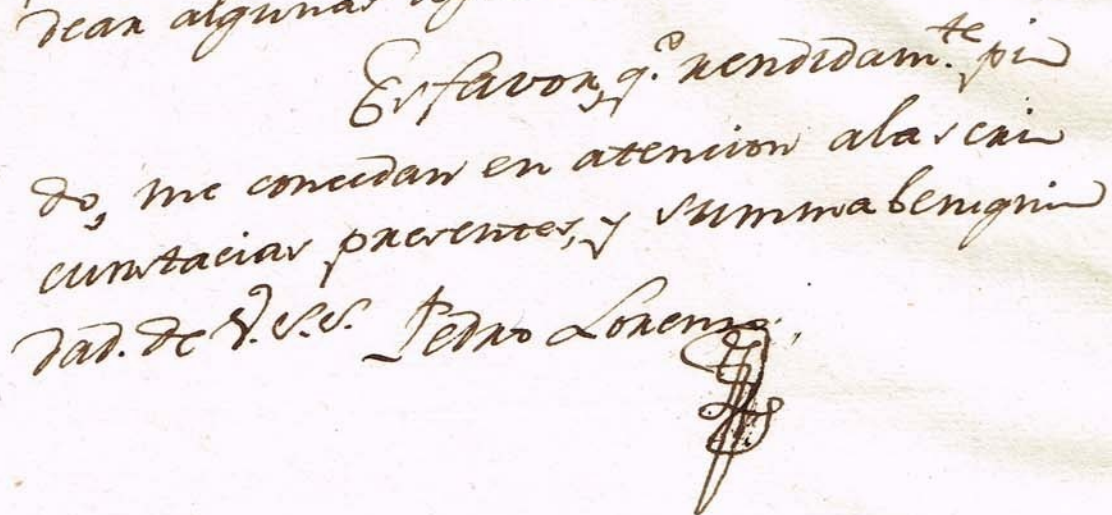 dean algunas
Es favor, q.e rendidam.te pi
do, me concedan en atencion alas cri
cunstacias presentes, y summa benigni
dad. de V.S.S. Pedro Lorenzo